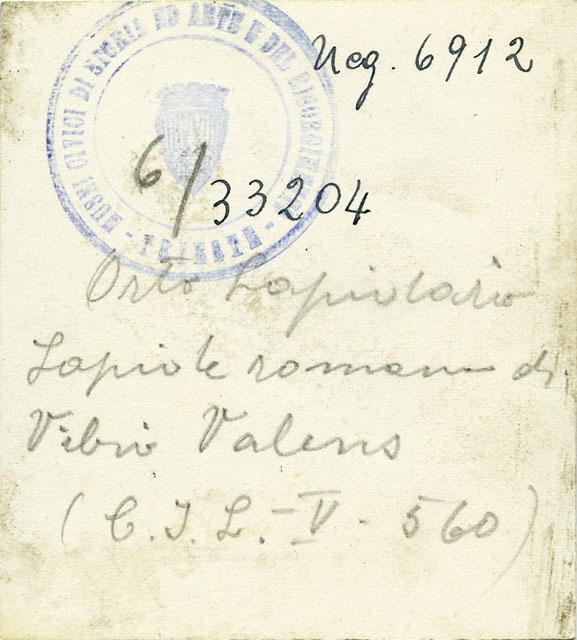 MUSEI CIVICI DI STORIA ED ARTE E DEL RISORGIMENTO
- TRIESTE -
Neg. 6912
6/33204
Orto Lapidario
Lapide romana di
Vibio Valens
(C.I.L. - V - 560)